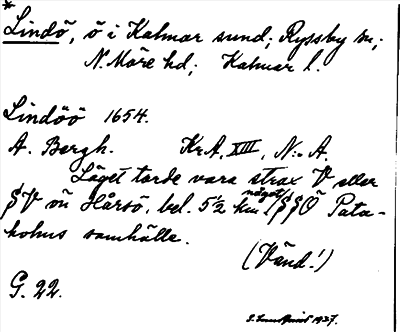 *
Lindö, ö i Kalmar sund; Ryssby sn;
N. Möre hd; Kalmar l.
Lindöö 1654.
A. Bergh. KrA, XIII, N:o A.
Läget torde vara strax V eller
SV om Hårsö, bel. 5 1/2 km något SSÖ Pata-
holms samhälle.
(Vänd!)
G. 22.
1937.